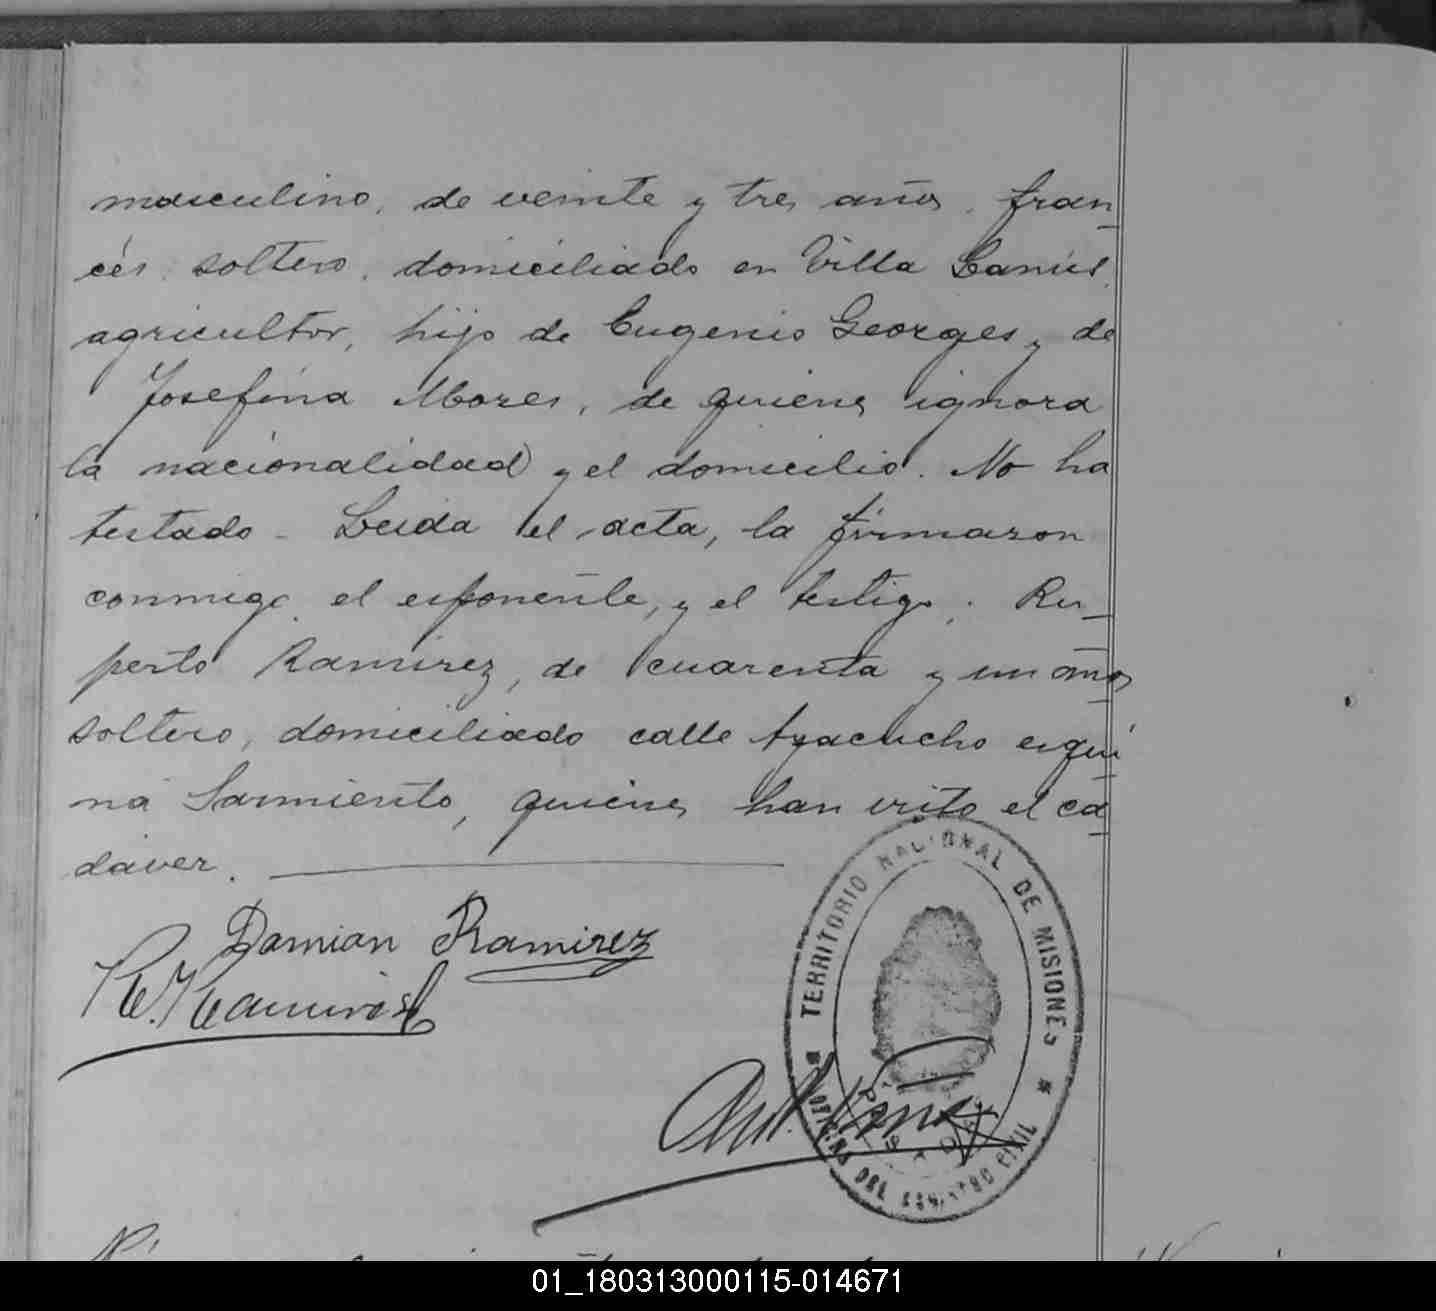 masculino, de veinte y tres años, fran_
cés, soltero, domiciliado en Villa Lanús,
agricultor, hijo de Eugenio Georges y de
Josefina Mozes, de quienes ignora
la nacionalidad y el domicilio. No ha
testado - Leida el acta, la firmaron
conmigo el esponente, y el testigo, Ru_
perto Ramirez, de cuarenta y un años
soltero, domiciliado calle Ayacucho esqui_
na Sarmiento, quienes han visto el ca_
daver.
Damian Ramirez
R. Ramirez
TERRITORIO NACIONAL DE MISIONES
OFICINA DEL REGISTRO CIVIL
POSADAS
01_180313000115-014671